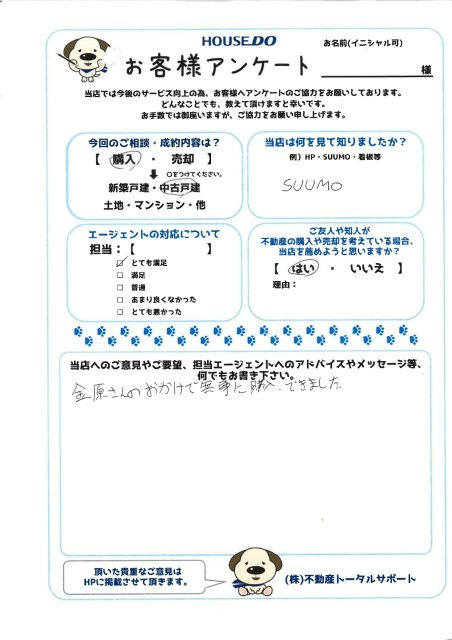 HOUSEDO
お名前(イニシャル可)
お客様アンケート
様
当店では今後のサービス向上の為、お客様へアンケートのご協力をお願いしております。
どんなことでも、教えて頂けますと幸いです。
お手数では御座いますが、ご協力をお願い申し上げます。
今回のご相談・成約内容は?
【 購入 ・ 売却 】
○をつけてください。
新築戸建・中古戸建
土地・マンション・他
当店は何を見て知りましたか?
例)HP・SUUMO・看板等
SUUMO
エージェントの対応について
担当:【 】
☑ とても満足
□ 満足
□ 普通
□ あまり良くなかった
□ とても悪かった
ご友人や知人が
不動産の購入や売却を考えている場合、
当店を薦めようと思いますか?
【 はい ・ いいえ 】
理由:
当店へのご意見やご要望、担当エージェントへのアドバイスやメッセージ等、
何でもお書き下さい。
金原さんのおかげで無事に購入できました
頂いた貴重なご意見は
HPに掲載させて頂きます。
(株)不動産トータルサポート